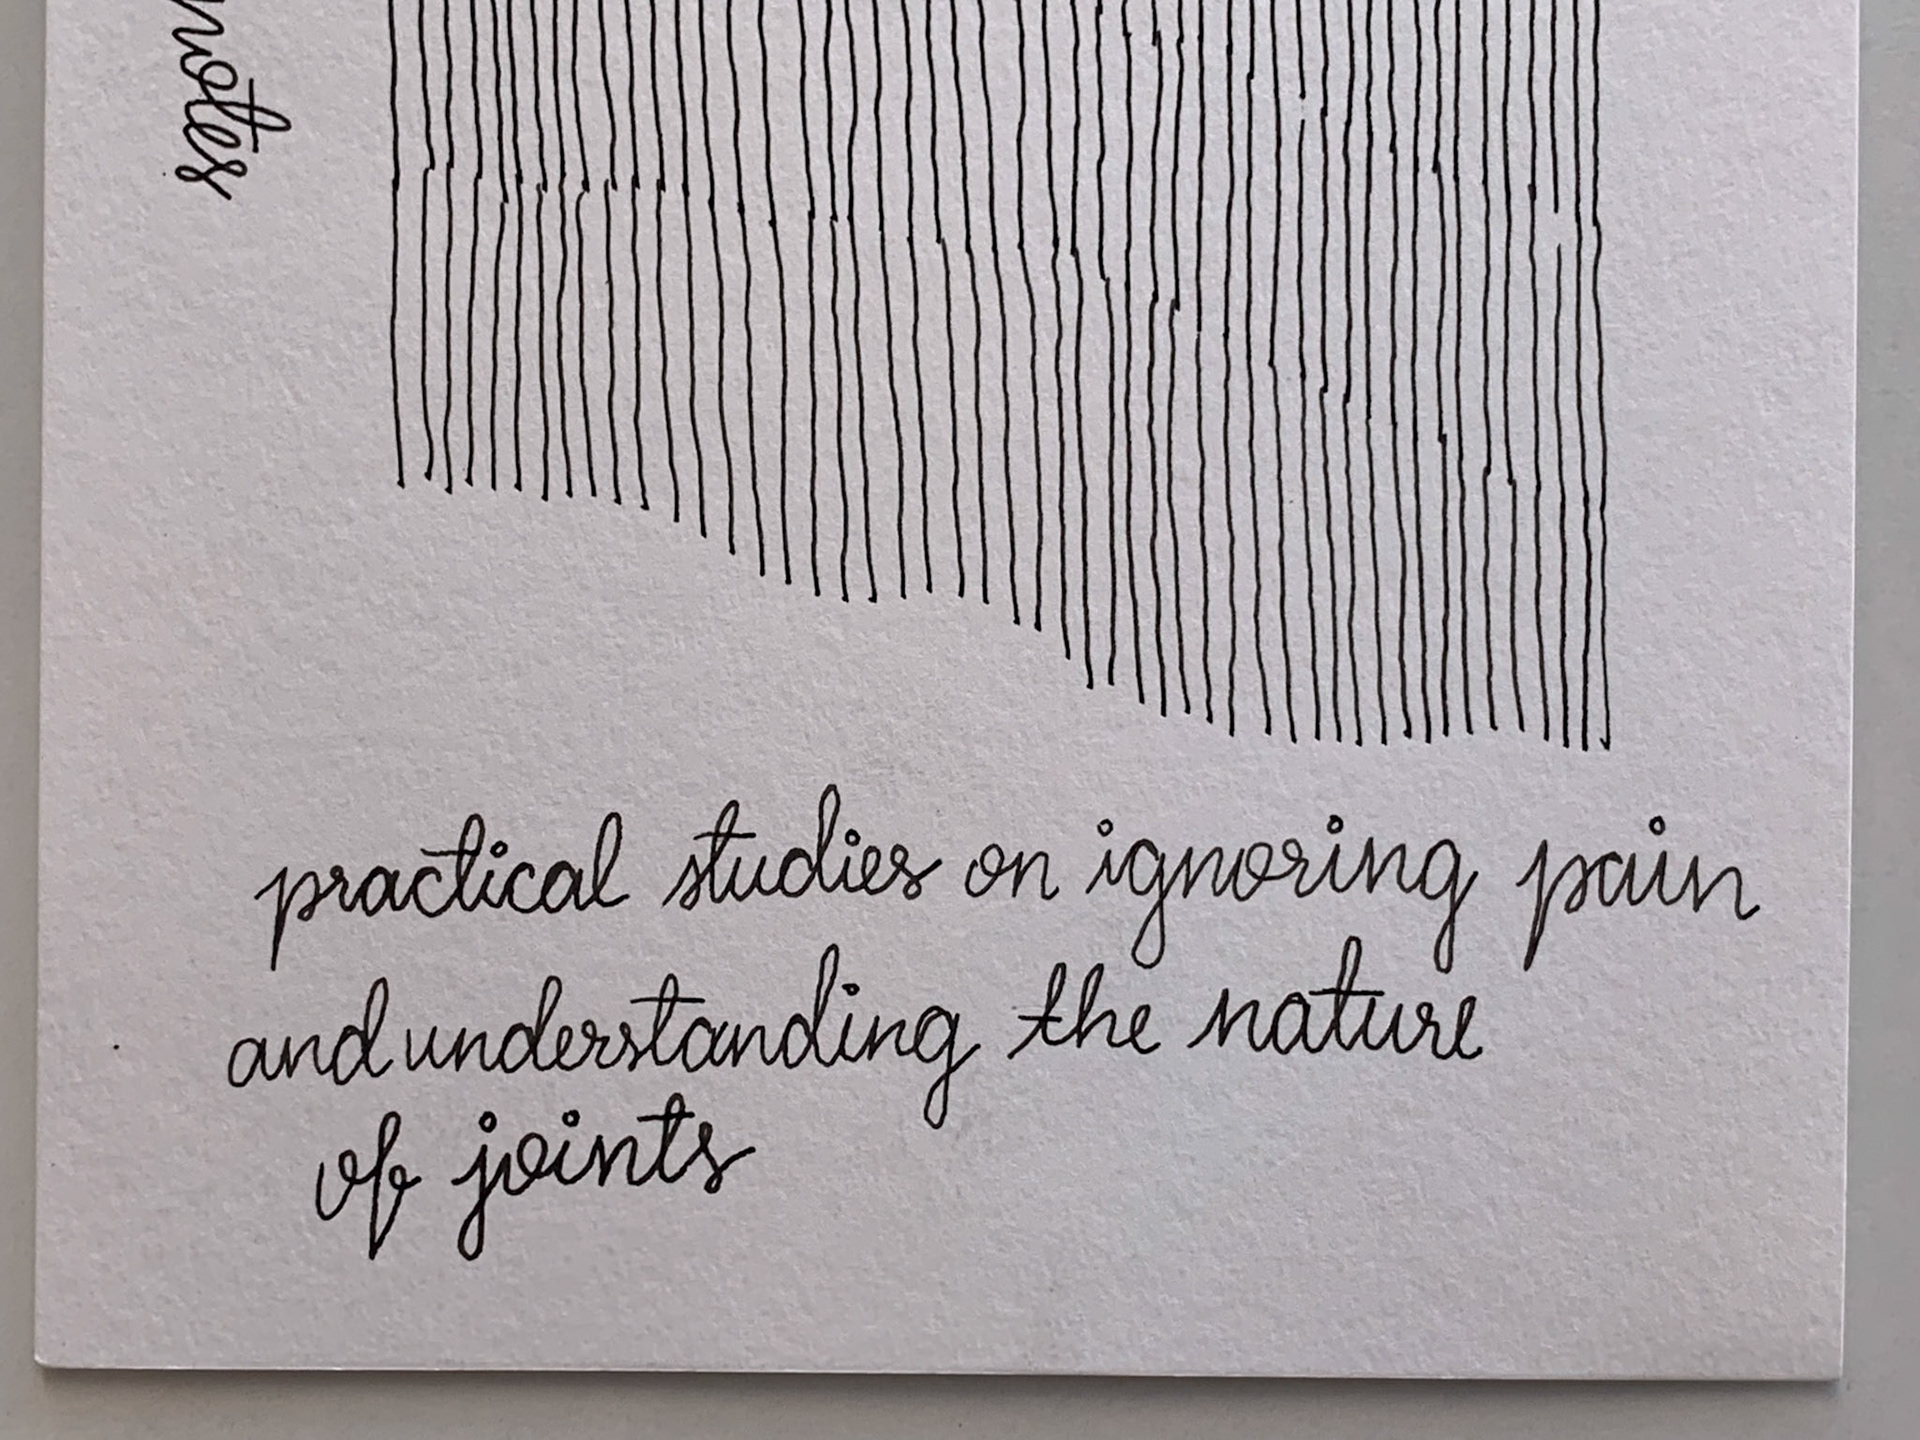 notes
practical studies on ignoring pain
and understanding the nature
of joints